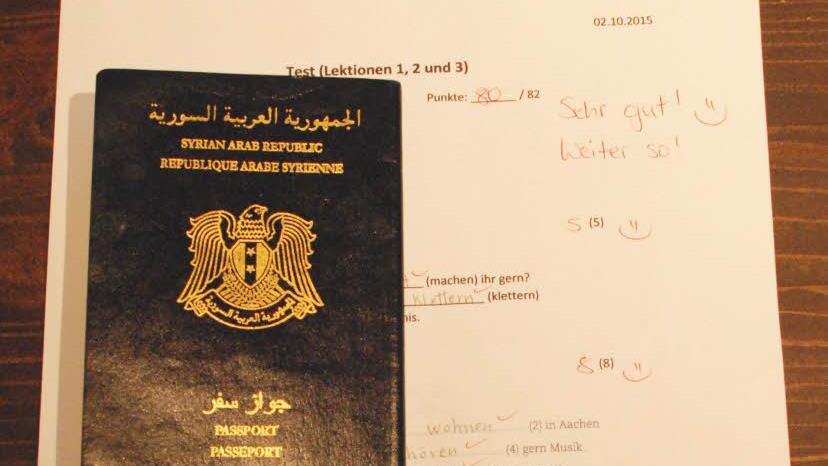 02.10.2015
Test (Lektionen 1, 2 und 3)
Punkte: 80 / 82
Sehr gut!
Weiter so!
5 (5)
(machen) ihr gern?
klettern (klettern)
8 (8)
wohnen (2) in Aachen
(4) gern Musik
الجمهورية العربية السورية
SYRIAN ARAB REPUBLIC
REPUBLIQUE ARABE SYRIENNE
الجمهورية العربية السورية
جواز سفر
PASSPORT
PASSEPORT